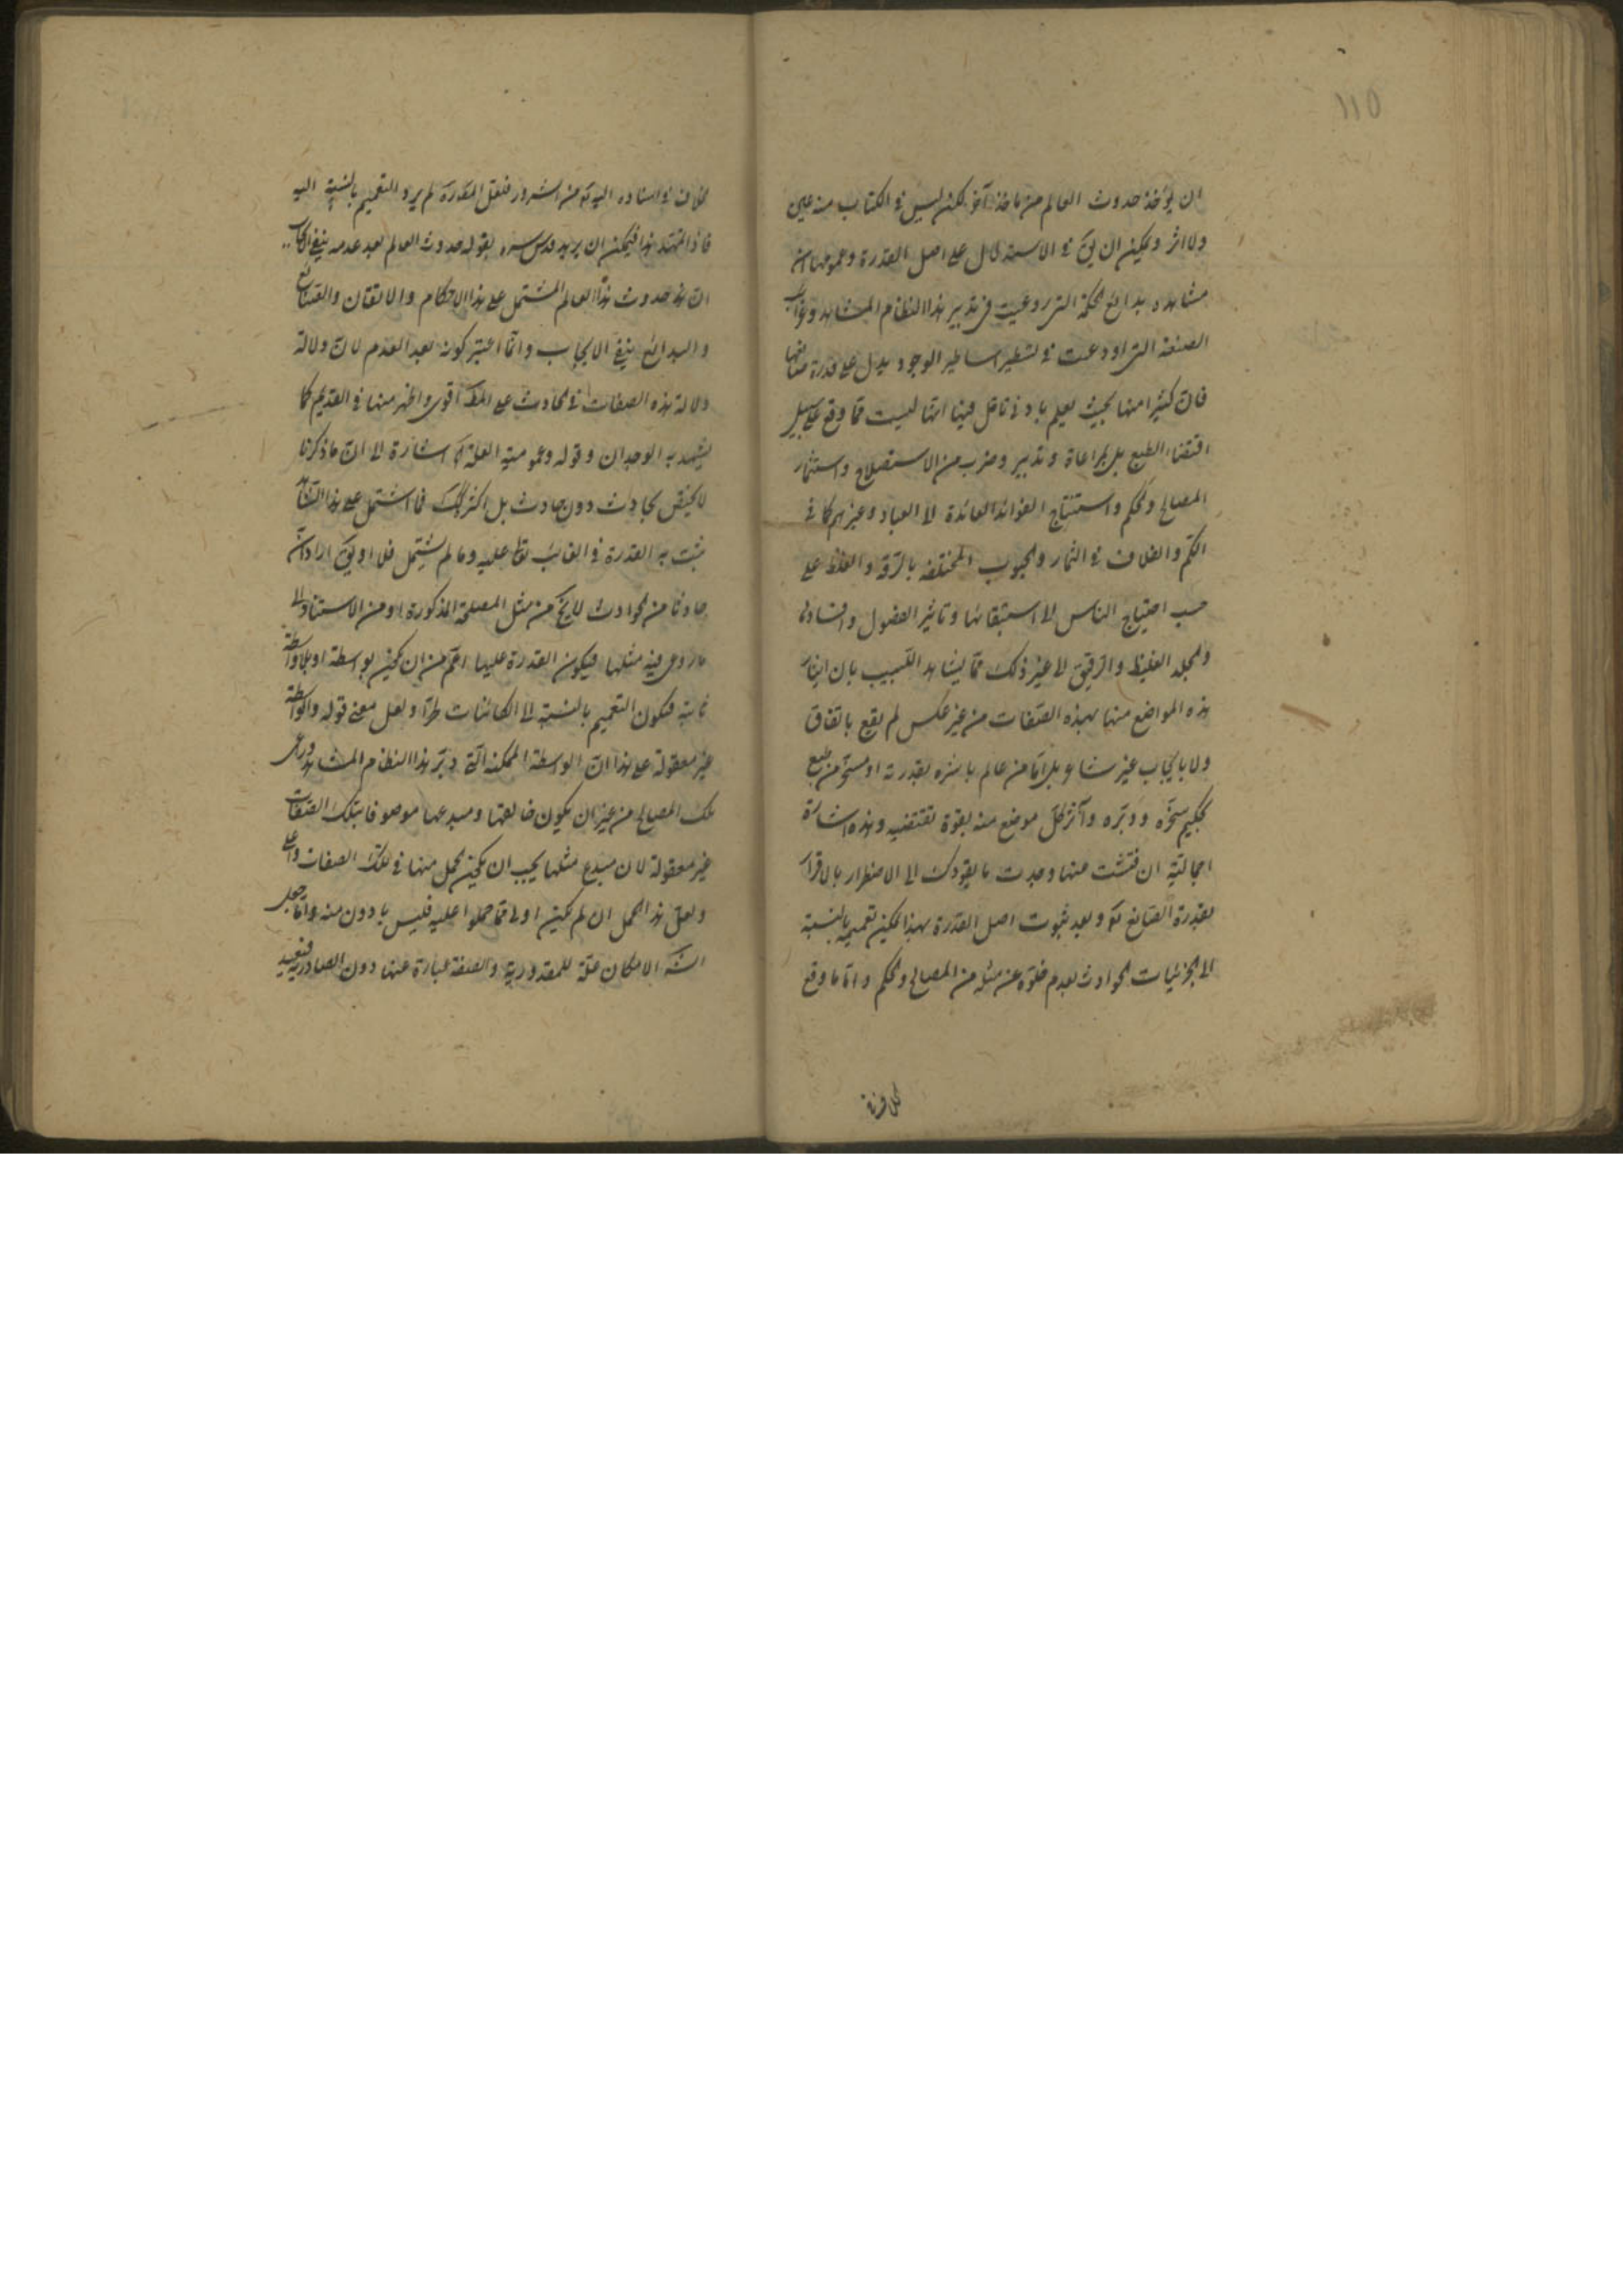 ١١٥
ان يؤخذ حدوث العالم من ماخذ آخر لكن ليس في الكتاب منه عين
ولا اثر ويمكن ان يق في الاستدلال على اصل القدرة وعمومها ان
مشاهدة بدائع الحكمة التي روعيت في تدبير هذا النظام المشاهد وغرائب
الصنعة التي اودعت في تسطير اساطير الوجود يدل على قدرة صانعها
فان كثيرا منها بحيث يعلم بادنى تامل فيها انها ليست مما وقع على سبيل
اقتضاء الطبع بل بمراعاة وتدبير وضرب من الاستصلاح واستثمار
المصالح والحكم واستنتاج الفوائد العائدة الى العباد وغيرهم كما في
الكم والغلاف في الثمار والحبوب المختلفة بالرقة والغلظ على
حسب احتياج الناس الى استبقائها وتاثير الفصول
والجلد الغليظ والرقيق الى غير ذلك مما يشاهد اللبيب بان ايثار
هذه المواضع منها بهذه الصفات من غير عكس لم يقع باتفاق
ولا بايجاب غير شاعر بل اما من عالم باشره بقدرته او مسخر من طبع
لحكيم سخره ودبره وآثر كل موضع منه بقوة تقتضيه وهذه اشارة
اجمالية ان فتشت منها وجدت ما يقودك الى الاضطرار بالاقرار
بقدرة الصانع تع وبعد ثبوت اصل القدرة بهذا يمكن تعميمه بالنسبة
الى الجزئيات الحوادث لعدم خلوه عن مثله من المصالح والحكم واما ما وقع
الخلاف في استناده اليه تع من الشرور فلعل المقدرة لم يرد التعميم بالنسبة اليه
فاذا تمهد هذا فيمكن ان يريد قدس سره بقوله حدوث العالم بعد عدمه ينفي الايجاب
ان هذا حدوث هذا العالم المشتمل على هذا الاحكام والاتقان والصنائع
والبدائع ينفي الايجاب وانما اعتبر كونه بعد العدم لان دلالة
دلالة هذه الصفات في الحادث على المط اقوى واظهر منها في القديم كما
يشهد به الوجدان وقوله وعمومية العلة اشارة الى ان ما ذكرنا
لا يختص بحادث دون حادث بل اكثر كك فما اشتمل على هذا
يثبت به القدرة في الغائب عليه وما لم يشتمل فلا او يق اراد ان
حادثا من الحوادث لا يخ من مثل المصلحة المذكورة او من الاستناد الى
ما روعى فيه مثلها فيكون القدرة عليها اعم من ان يكون بواسطة او بلا واسطة
ثابتة فيكون التعميم بالنسبة الى الكائنات طرا ولعل معنى قوله والواسطة
غير معقولة على هذا ان الواسطة الممكنة التي دبر هذا النظام المشاهد وراعى
تلك المصالح من غير ان يكون خالقها ومبدعها موصوفا بتلك الصفات
غير معقولة لان مبدع مثلها يجب ان يكون اكمل منها في تلك الصفات واعلى
ولعل هذا الحمل ان لم يكن اولى مما حملوا عليه فليس بادون منه واما جعل
الش الامكان علة للمقدورية والصفة عبارة عنها دون الصادرية فبعيد